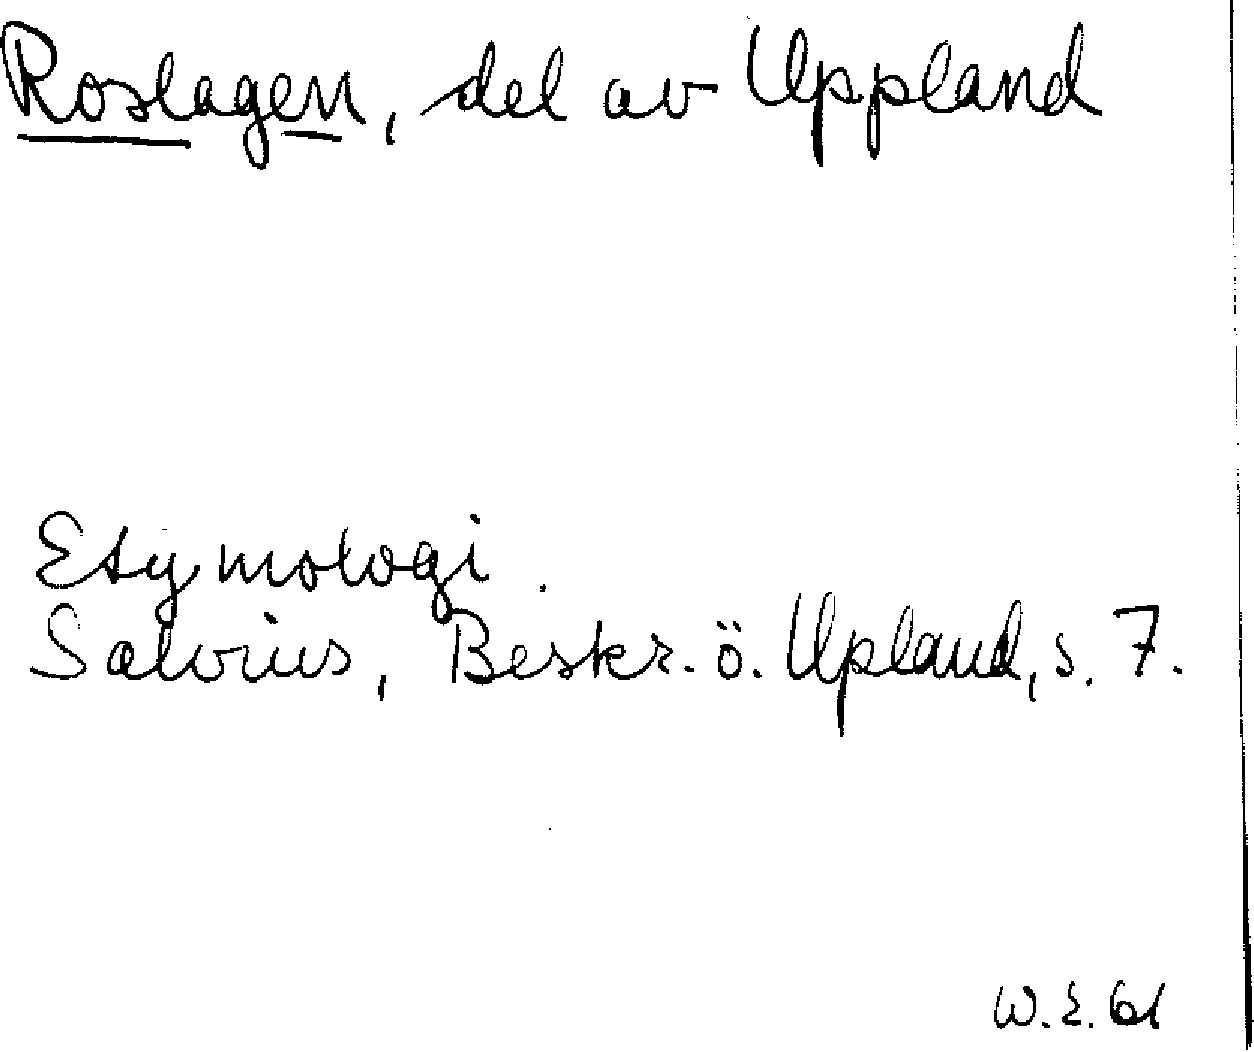 Roslagen, del av Uppland
Etymologi.
Salvius, Beskr. ö. Upland, s. 7.
W.E. 61